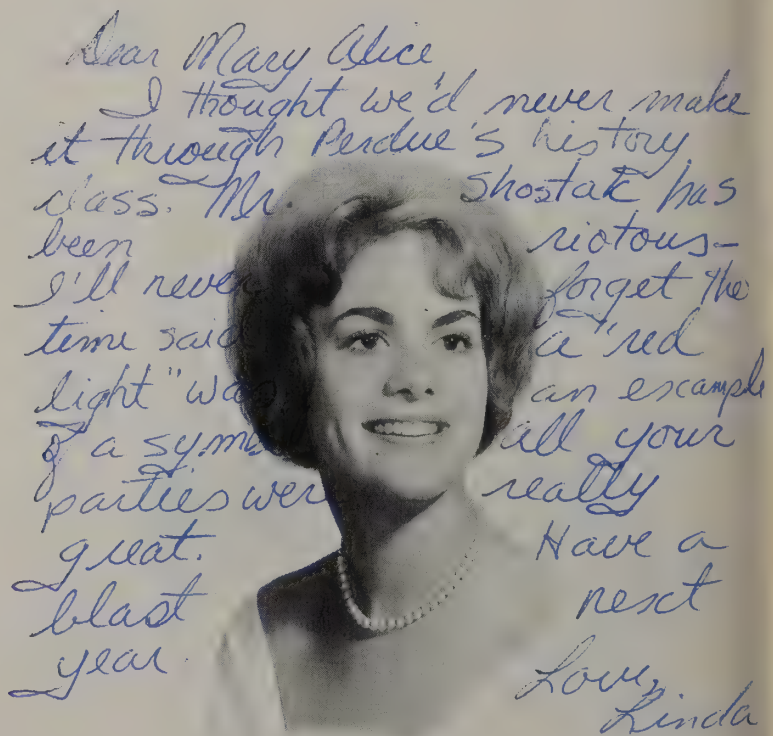 Dear Mary Alice
I thought we'd never make
it through Perdue's history
class. Mr. Shostak has
been riotous-
I'll never forget the
time said a "red
light" was an example
of a symb all your
parties were really
great. Have a
blast next
year
Love,
Linda